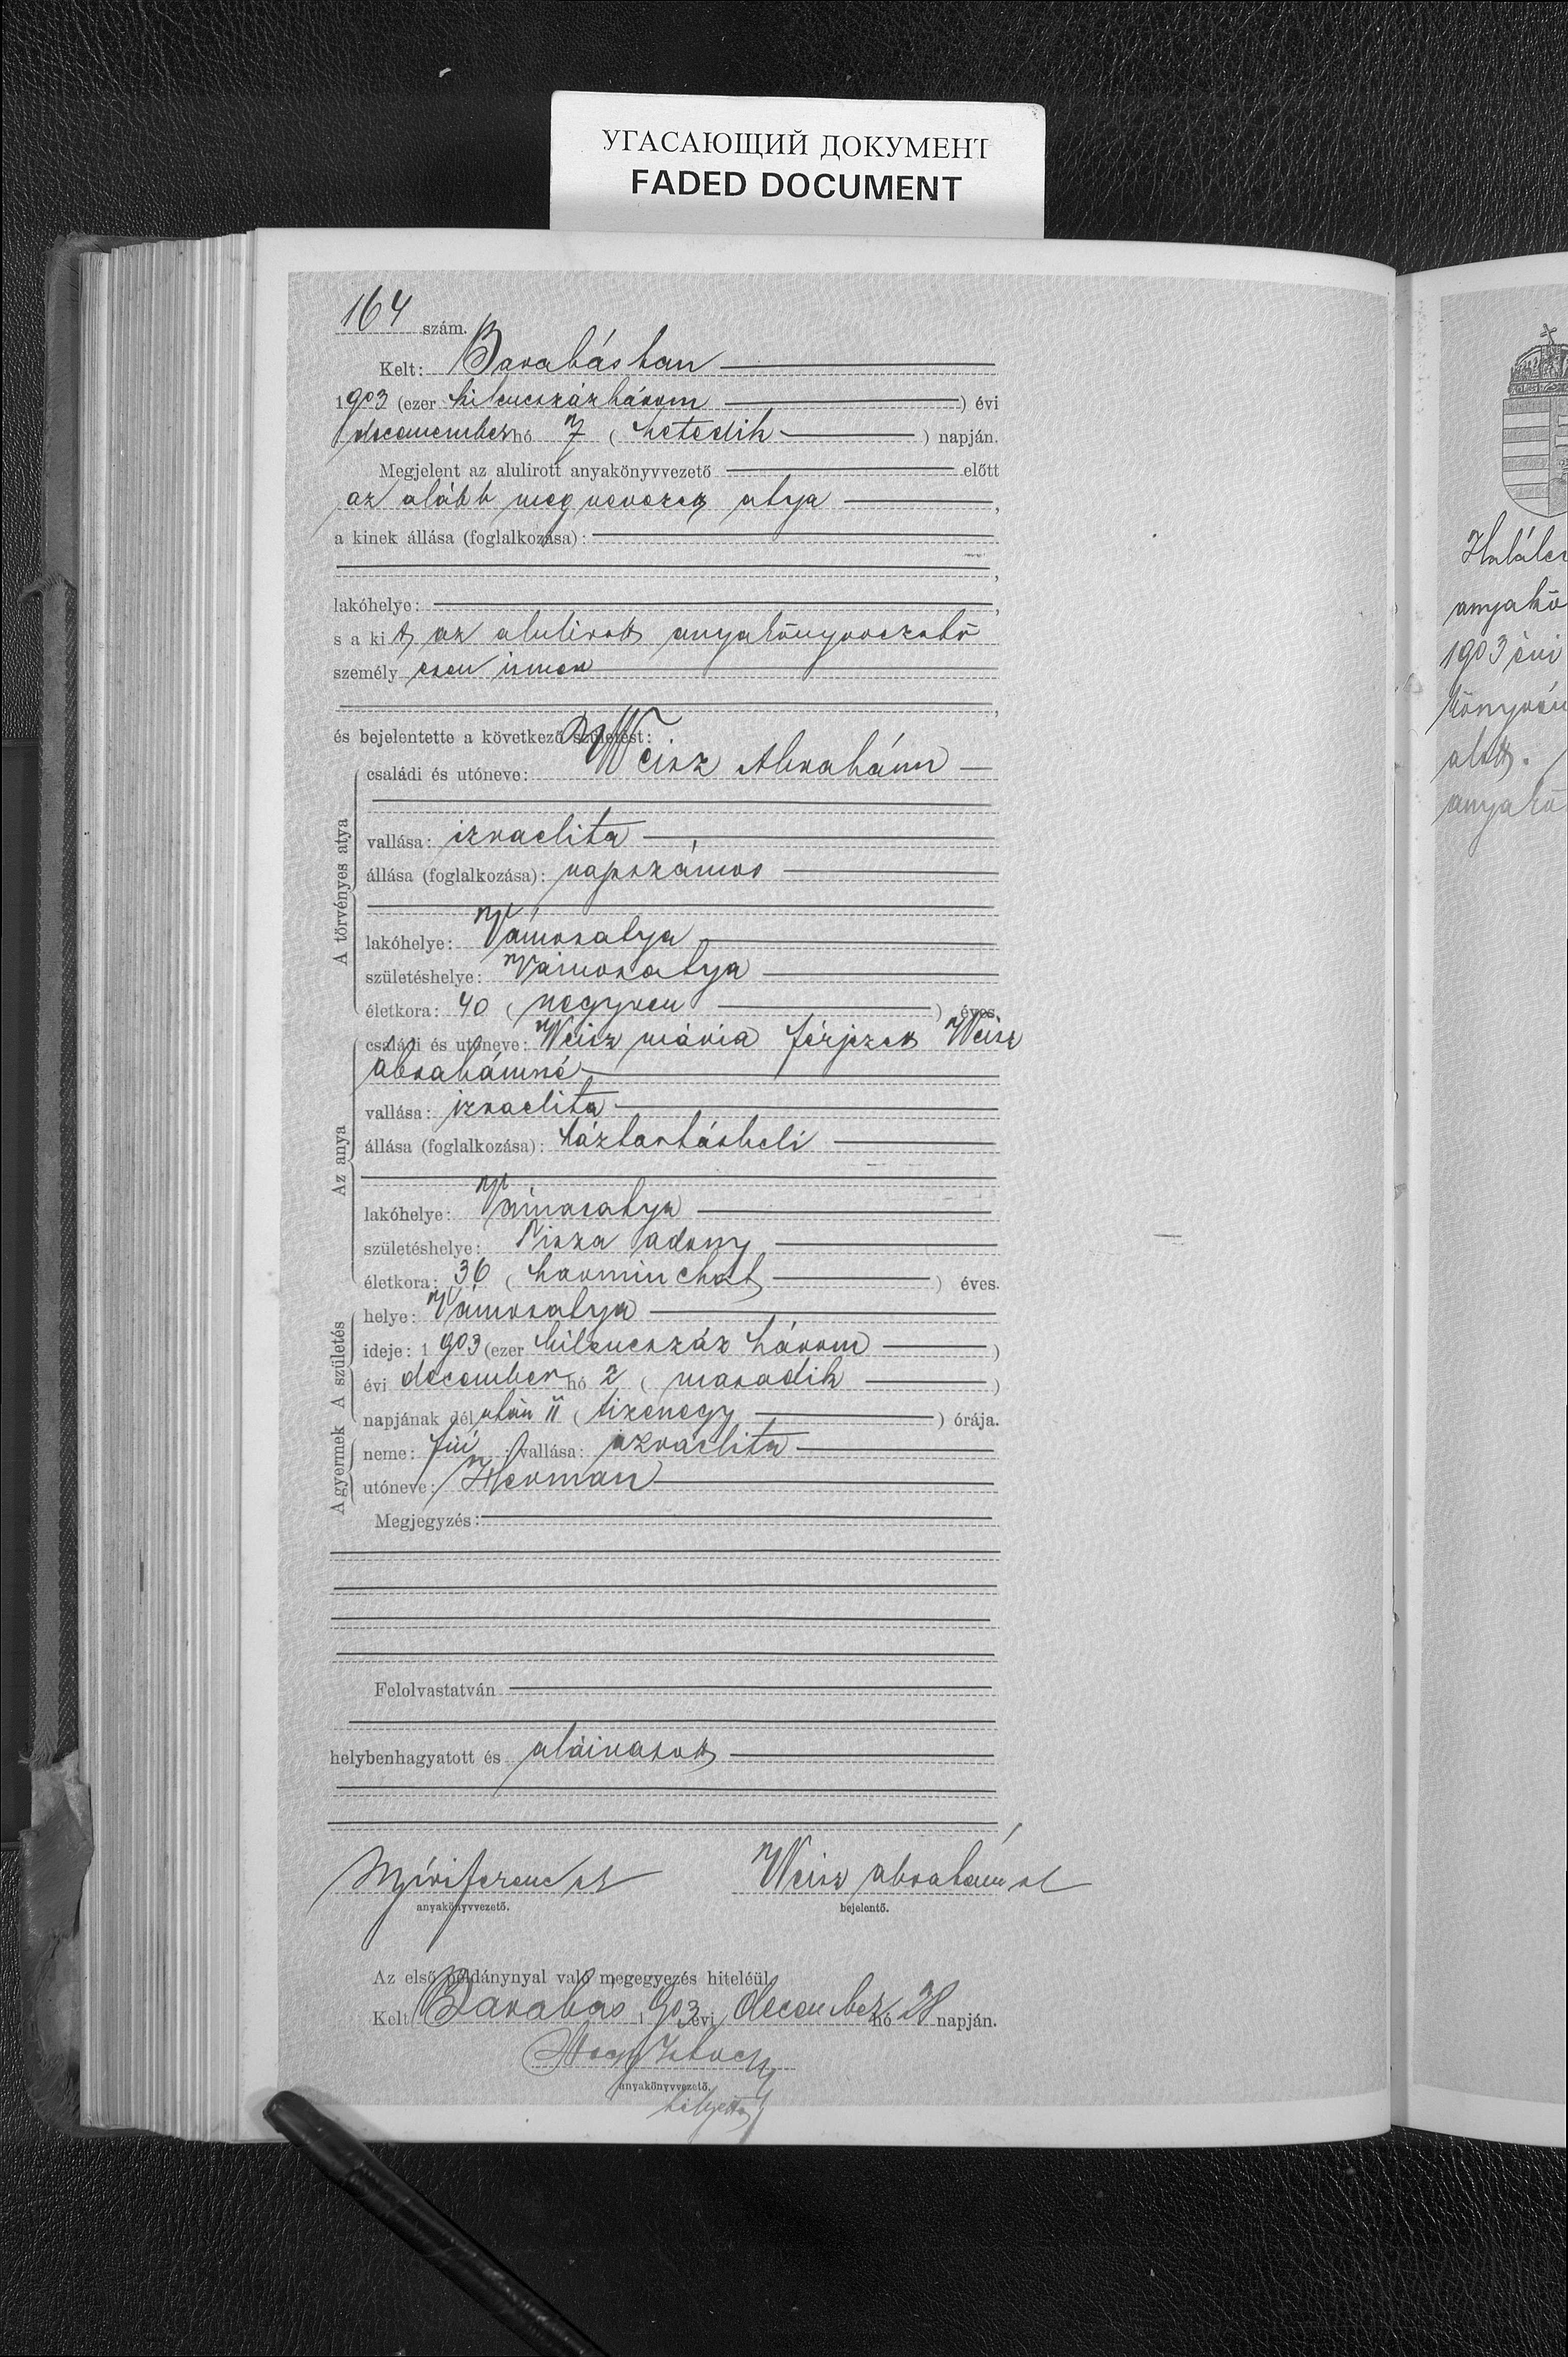 УГАСАЮЩИЙ ДОКУМЕНТ
FADED DOCUMENT
164 szám.
Kelt: Barabásban
1903 (ezer kilencszázhárom) évi
decemember hó 7 (hetedik) napján.
Megjelent az alulirott anyakönyvvezető előtt
az alább megnevezett atya,
a kinek állása (foglalkozása):
,
lakóhelye: ,
s a kit az alulirott anyakönyvvezető
személyesen ismer
,
és bejelentette a következő születést:
A törvényes atya
családi és utóneve: Weisz Abrahám
vallása: izraelita
állása (foglalkozása): napszámos
lakóhelye: Vámosatya
születéshelye: Vámosatya
életkora: 40 (negyven) éves.
Az anya
családi és utóneve: Weisz mária férjezett Weisz
abrahámné
vallása: izraelita
állása (foglalkozása): háztartásbeli
lakóhelye: Vámosatya
születéshelye: Tisza adony
életkora: 36 (harminchat) éves.
A születés
helye: Vámosatya
ideje: 1903 (ezer kilencszáz három)
évi december hó 2 (masadik)
napjának dél után 11 (tizenegy) órája.
A gyermek
neme: fiú; vallása: izraelita
utóneve: Herman
Megjegyzés:
Felolvastatván
helybenhagyatott és aláiratott
Nyíri ferencz sk Weisz abrahám sk
anyakönyvvezető. bejelentő.
Az első példánynyal való megegyezés hiteléül
Kelt Barabás 1903 évi december hó 28 napján.
Nagy
anyakönyvvezető.
helyettes
anyakö
1903 évi
alatt.
anyakö